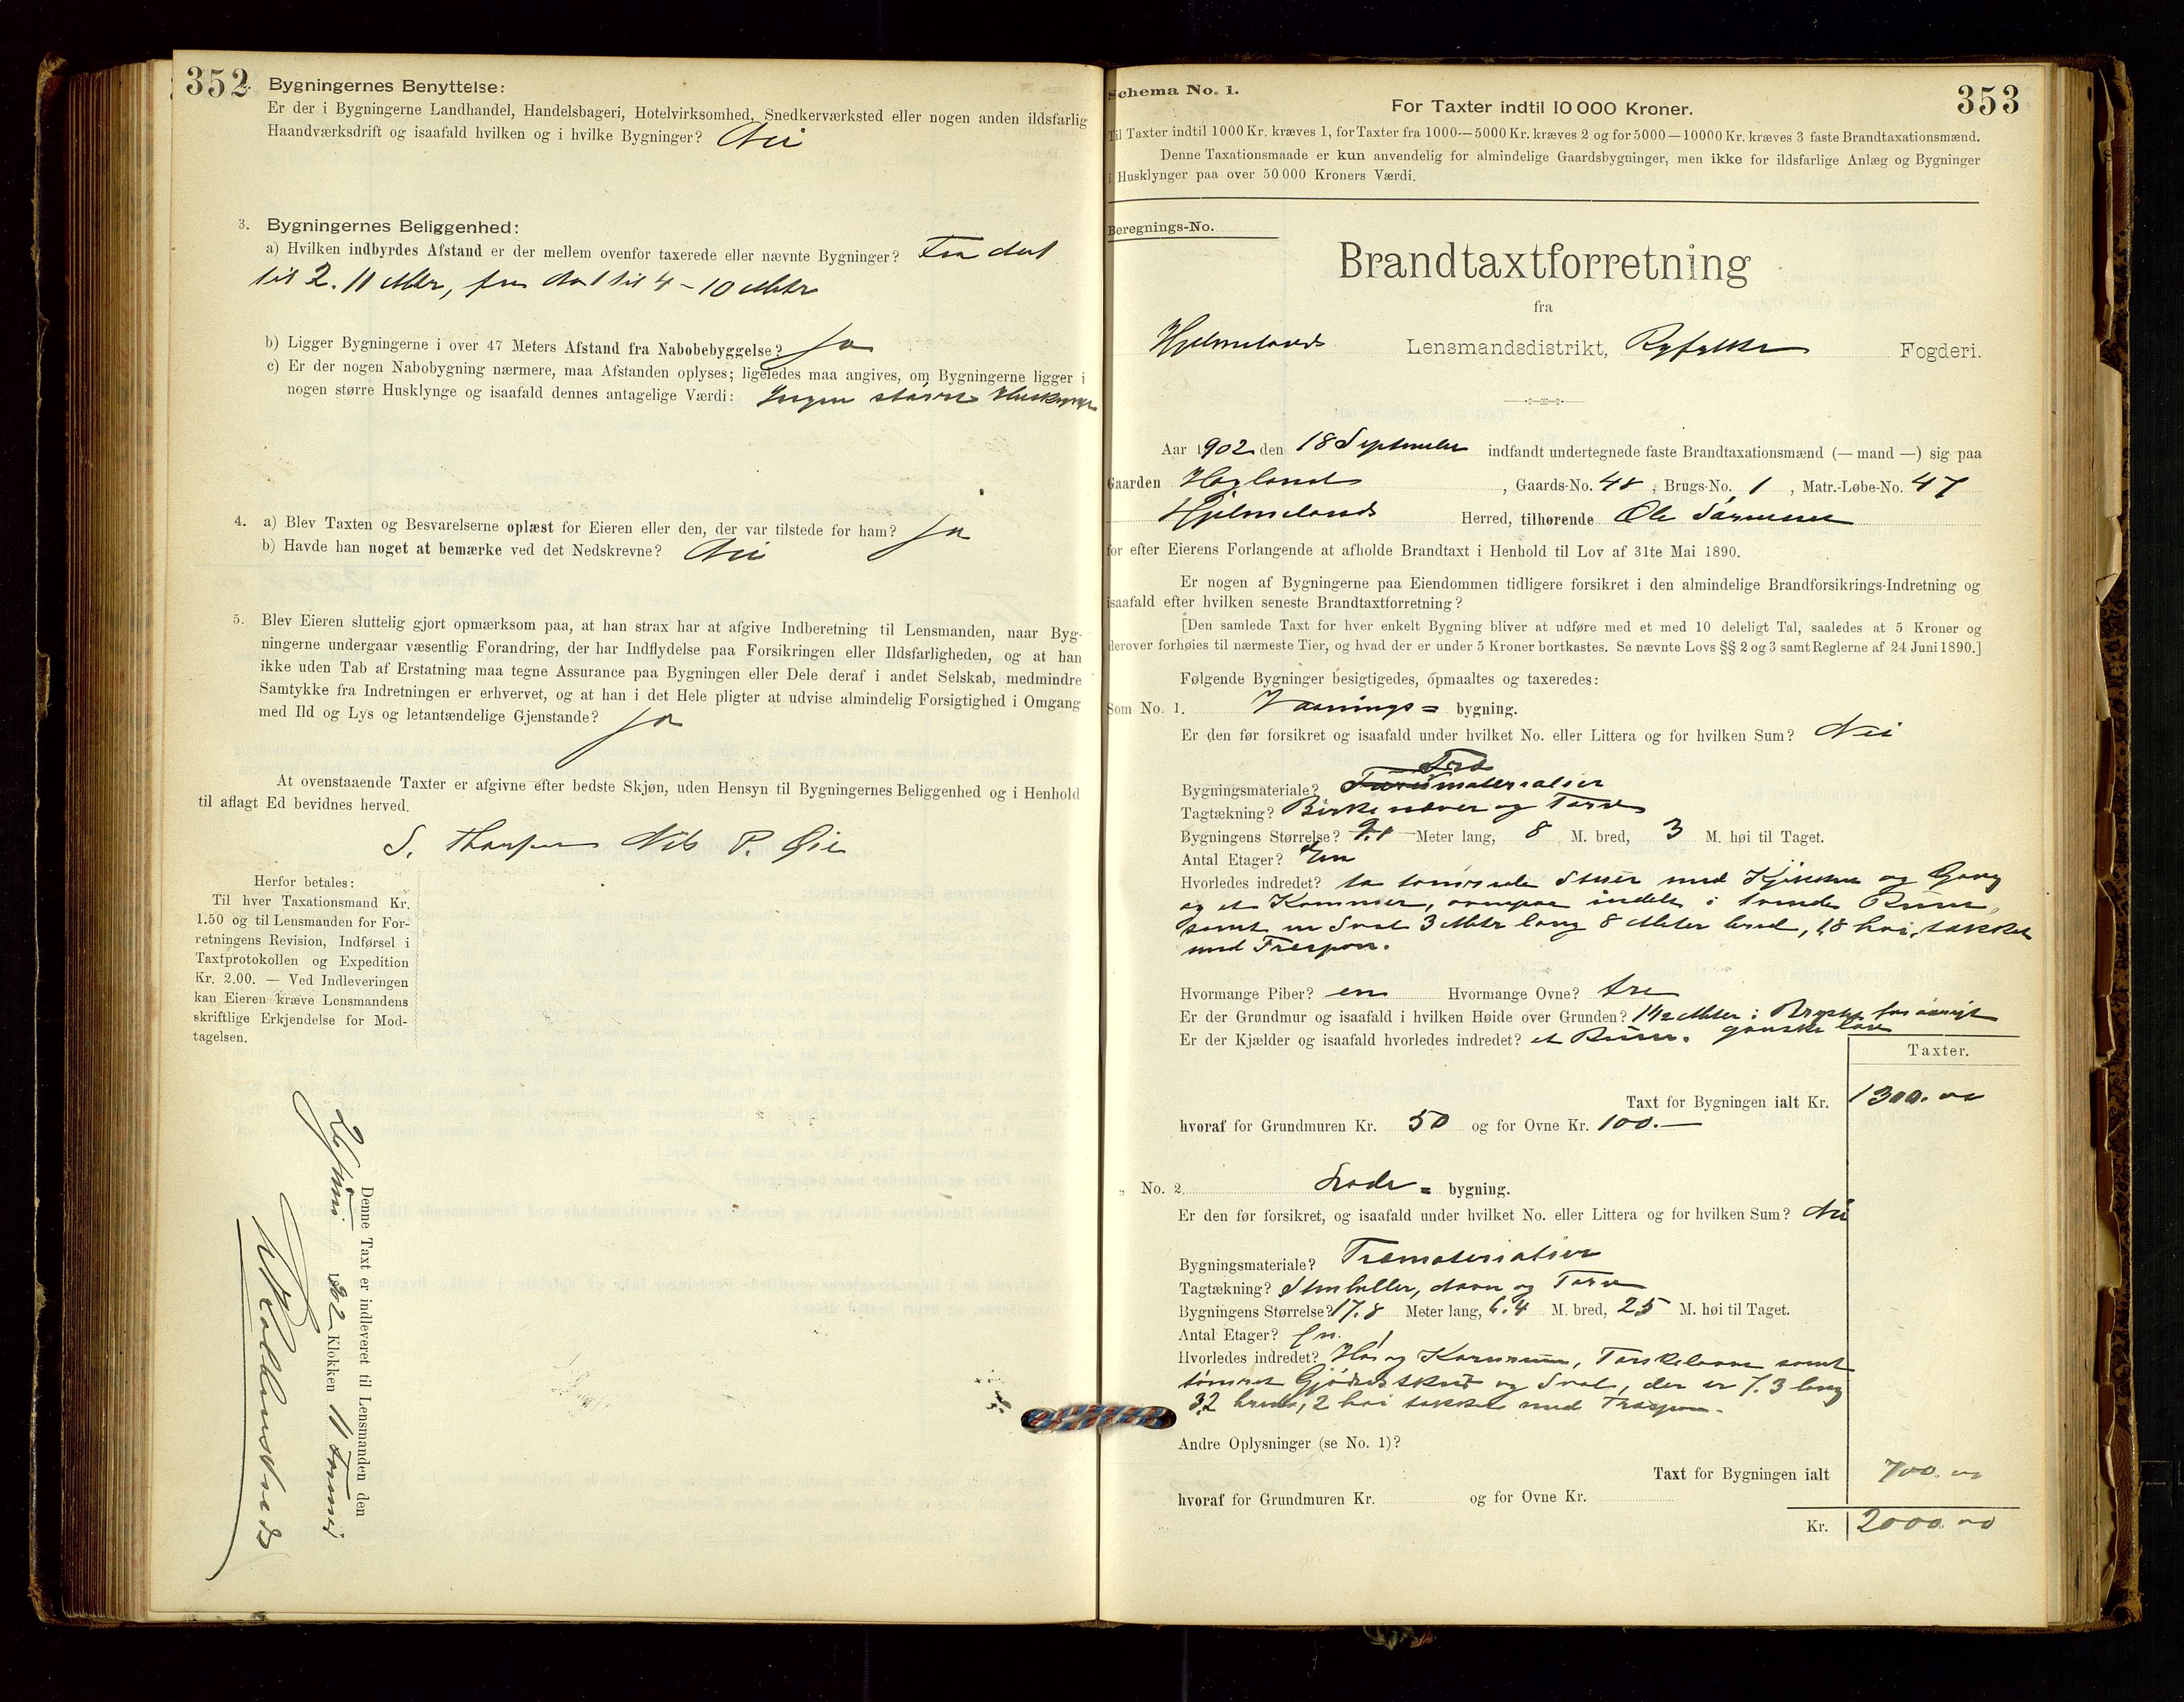 352
Bygningernes Benyttelse:
Er der i Bygningerne Landhandel, Handelsbageri, Hotelvirksomhed, Snedkerværksted eller nogen anden ildsfarlig
Haandværksdrift og isaafald hvilken og i hvilke Bygninger? Nei
3. Bygningernes Beliggenhed:
a) Hvilken indbyrdes Afstand er der mellem ovenfor taxerede eller nævnte Bygninger? Fra
til 2. 11 Mtr, fra til 4 - 10 Mtr
b) Ligger Bygningerne i over 47 Meters Afstand fra Nabobebyggelse? Ja
c) Er der nogen Nabobygning nærmere, maa Afstanden oplyses; ligeledes maa angives, om Bygningerne ligger i
nogen større Husklynge og isaafald dennes antagelige Værdi: Ingen større Husklynge
4. a) Blev Taxten og Besvarelserne oplæst for Eieren eller den, der var tilstede for ham? Ja
b) Havde han noget at bemærke ved det Nedskrevne? Nei
5. Blev Eieren sluttelig gjort opmærksom paa, at han strax har at afgive Indberetning til Lensmanden, naar Byg-
ningerne undergaar væsentlig Forandring, der har Indflydelse paa Forsikringen eller Ildsfarligheden, og at han
ikke uden Tab af Erstatning maa tegne Assurance paa Bygningen eller Dele deraf i andet Selskab, medmindre
Samtykke fra Indretningen er erhvervet, og at han i det Hele pligter at udvise almindelig Forsigtighed i Omgang
med Ild og Lys og letantændelige Gjenstande? Ja
At ovenstaaende Taxter er afgivne efter bedste Skjøn, uden Hensyn til Bygningernes Beliggenhed og i Henhold
til aflagt Ed bevidnes herved.
S. Nils P. Øie
Herfor betales:
Til hver Taxationsmand Kr.
1.50 og til Lensmanden for For-
retningens Revision, Indførsel i
Taxtprotokollen og Expedition
Kr. 2.00. — Ved Indleveringen
kan Eieren kræve Lensmandens
skriftlige Erkjendelse for Mod-
tagelsen.
Denne Taxt er indleveret til Lensmanden den
1902 Klokken 11 Formid
353
Schema No. 1.
For Taxter indtil 10 000 Kroner.
Til Taxter indtil 1000 Kr. kræves 1, for Taxter fra 1000—5000 Kr. kræves 2 og for 5000—10000 Kr. kræves 3 faste Brandtaxationsmænd.
Denne Taxationsmaade er kun anvendelig for almindelige Gaardsbygninger, men ikke for ildsfarlige Anlæg og Bygninger
i Husklynger paa over 50 000 Kroners Værdi.
Beregnings-No.
Brandtaxtforretning
fra
Hjelmelands Lensmandsdistrikt, Ryfylke Fogderi.
Aar 1902 den 18 September indfandt undertegnede faste Brandtaxationsmænd (— mand —) sig paa
Gaarden Hagland, Gaards-No. 48, Brugs-No. 1, Matr.-Løbe-No. 47
Hjelmelands Herred, tilhørende Ole
for efter Eierens Forlangende at afholde Brandtaxt i Henhold til Lov af 31te Mai 1890.
Er nogen af Bygningerne paa Eiendommen tidligere forsikret i den almindelige Brandforsikrings-Indretning og
isaafald efter hvilken seneste Brandtaxtforretning?
[Den samlede Taxt for hver enkelt Bygning bliver at udføre med et med 10 deleligt Tal, saaledes at 5 Kroner og
derover forhøies til nærmeste Tier, og hvad der er under 5 Kroner bortkastes. Se nævnte Lovs §§ 2 og 3 samt Reglerne af 24 Juni 1890.]
Følgende Bygninger besigtigedes, opmaaltes og taxeredes:
Som No. 1. Vaanings= bygning.
Er den før forsikret og isaafald under hvilket No. eller Littera og for hvilken Sum? Nei
Bygningsmateriale? Træmaterialier
Tagtækning? Birkenæver og Torv
Bygningens Størrelse? Meter lang, 8 M. bred, 3 M. høi til Taget.
Antal Etager? En
Hvorledes indredet? to tømrede Stuer med Kjøkken og Gang
og et Kammer, ovenpaa indelt i tvende Rum,
samt en Sval 3 Mtr lang 8 Meter bred, 1,8 høi, tækket
med Træspon.
Hvormange Piber? en Hvormange Ovne? tre
Er der Grundmur og isaafald i hvilken Høide over Grunden? 1½ Meter i forøvrigt
Er der Kjælder og isaafald hvorledes indredet? et Rum. ganske lav
Taxter.
Taxt for Bygningen ialt Kr. 1300.00
hvoraf for Grundmuren Kr. 50 og for Ovne Kr. 100.—
„ No. 2. Lade= bygning.
Er den før forsikret, og isaafald under hvilket No. eller Littera og for hvilken Sum? Nei
Bygningsmateriale? Træmaterialier
Tagtækning? Stenheller, og Torv
Bygningens Størrelse? 17.8 Meter lang, 6.4 M. bred, 25 M. høi til Taget.
Antal Etager? En
Hvorledes indredet? Hø og Kornrum, samt
tømret og Sval, der er 7.3 lang
3.2 bred, 2 høi tækket med Træspon.
Andre Oplysninger (se No. 1)?
Taxt for Bygningen ialt 700.00
hvoraf for Grundmuren Kr. og for Ovne Kr.
Kr. 2000.00